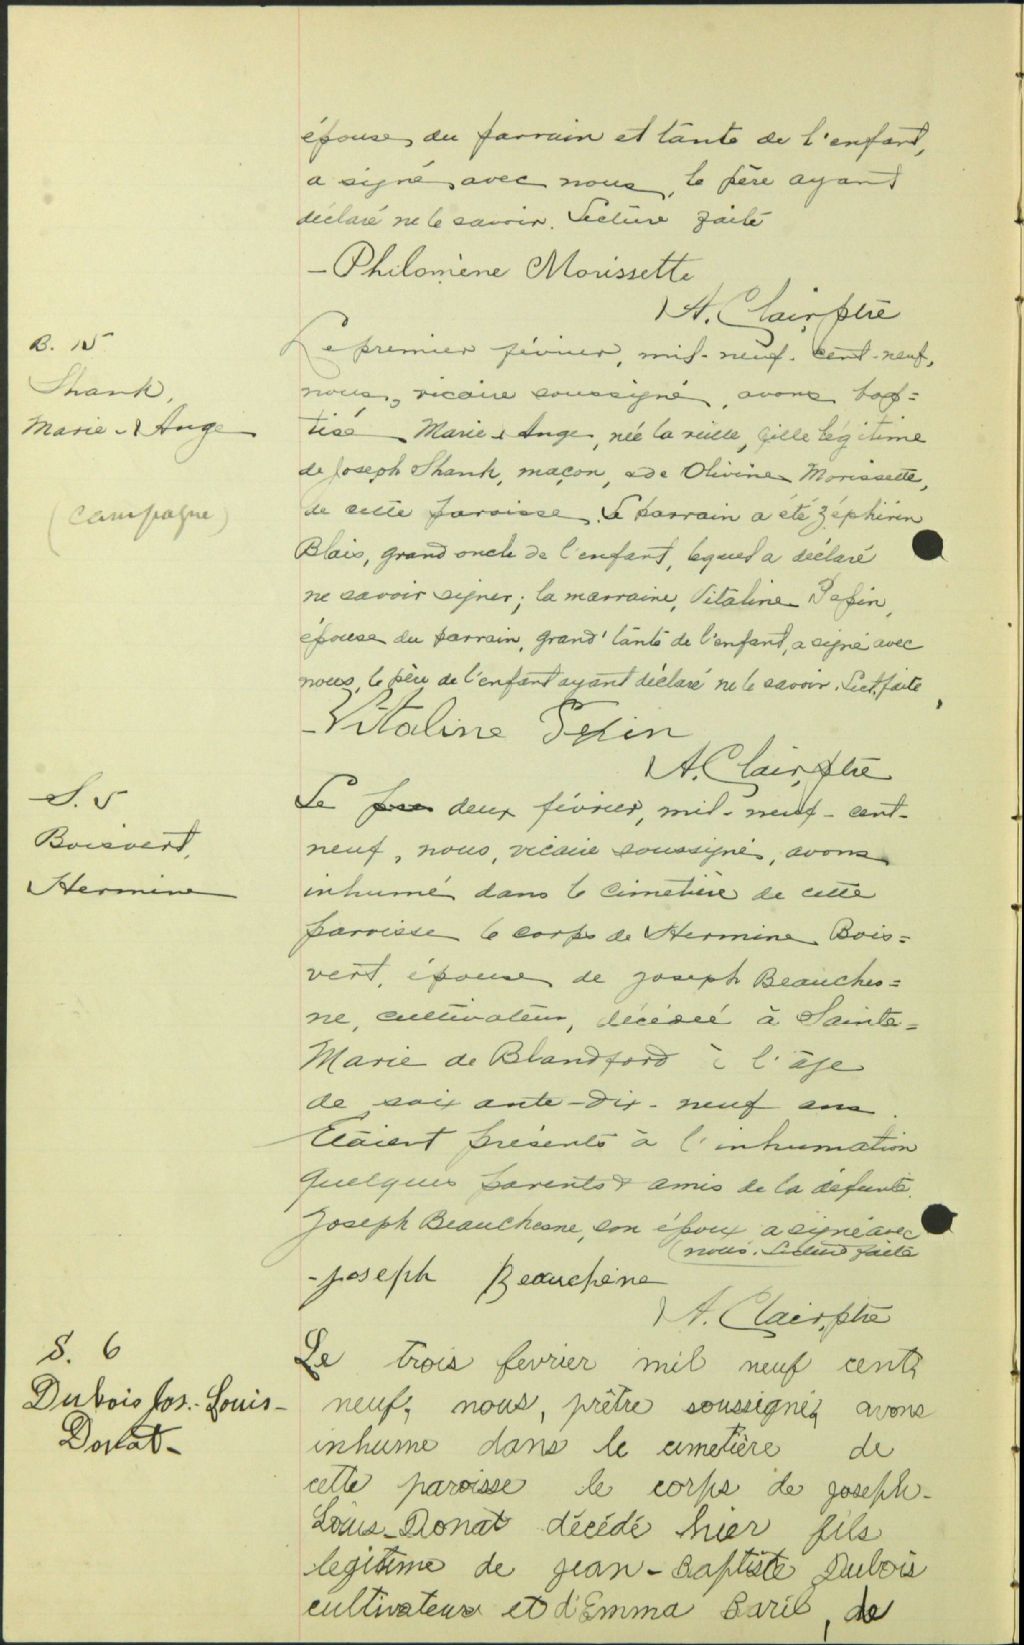 épouse du parrain et tante de l'enfant,
a signé avec nous, le père ayant
déclaré ne le savoir. Lecture faite
- Philomène Morissette
A. Clair, ptre
B. 15
Shank,
Marie-Ange
(campagne)
Le premier février, mil-neuf-cent-neuf,
nous, vicaire soussigné, avons bap=
tisé Marie-Ange, née la veille, fille légitime
de Joseph Shank, maçon, & de Olivine Morissette,
de cette paroisse. Le parrain a été Zéphirin
Blais, grand oncle de l'enfant, lequel a déclaré
ne savoir signer; la marraine, Vitaline Pepin,
épouse du parrain, grand'tante de l'enfant, a signé avec
nous, le père de l'enfant ayant déclaré ne le savoir. Lect. faite
- Vitaline Pepin
A. Clair, ptre
S. 5
Boisvert,
Hermine
Le deux février, mil-neuf-cent-
neuf, nous, vicaire soussigné, avons
inhumé dans le cimetière de cette
paroisse le corps de Hermine Bois=
vert, épouse de Joseph Beauches=
ne, cultivateur, décédée à Sainte=
Marie de Blandford à l'âge
de soixante-dix-neuf ans.
Etaient présents à l'inhumation
quelques parents & amis de la défunte.
Joseph Beauchesne, son époux a signé avec
nous. Lecture faite
- Joseph Beauchene
A. Clair, ptre
S. 6
Dubois Jos.-Louis-
Donat-
Le trois fevrier mil neuf cent
neuf, nous, prêtre soussigné, avons
inhume dans le cimetière de
cette paroisse le corps de Joseph-
Louis-Donat décédé hier fils
legitime de Jean-Baptiste Dubois
cultivateur et d'Emma Baril, de